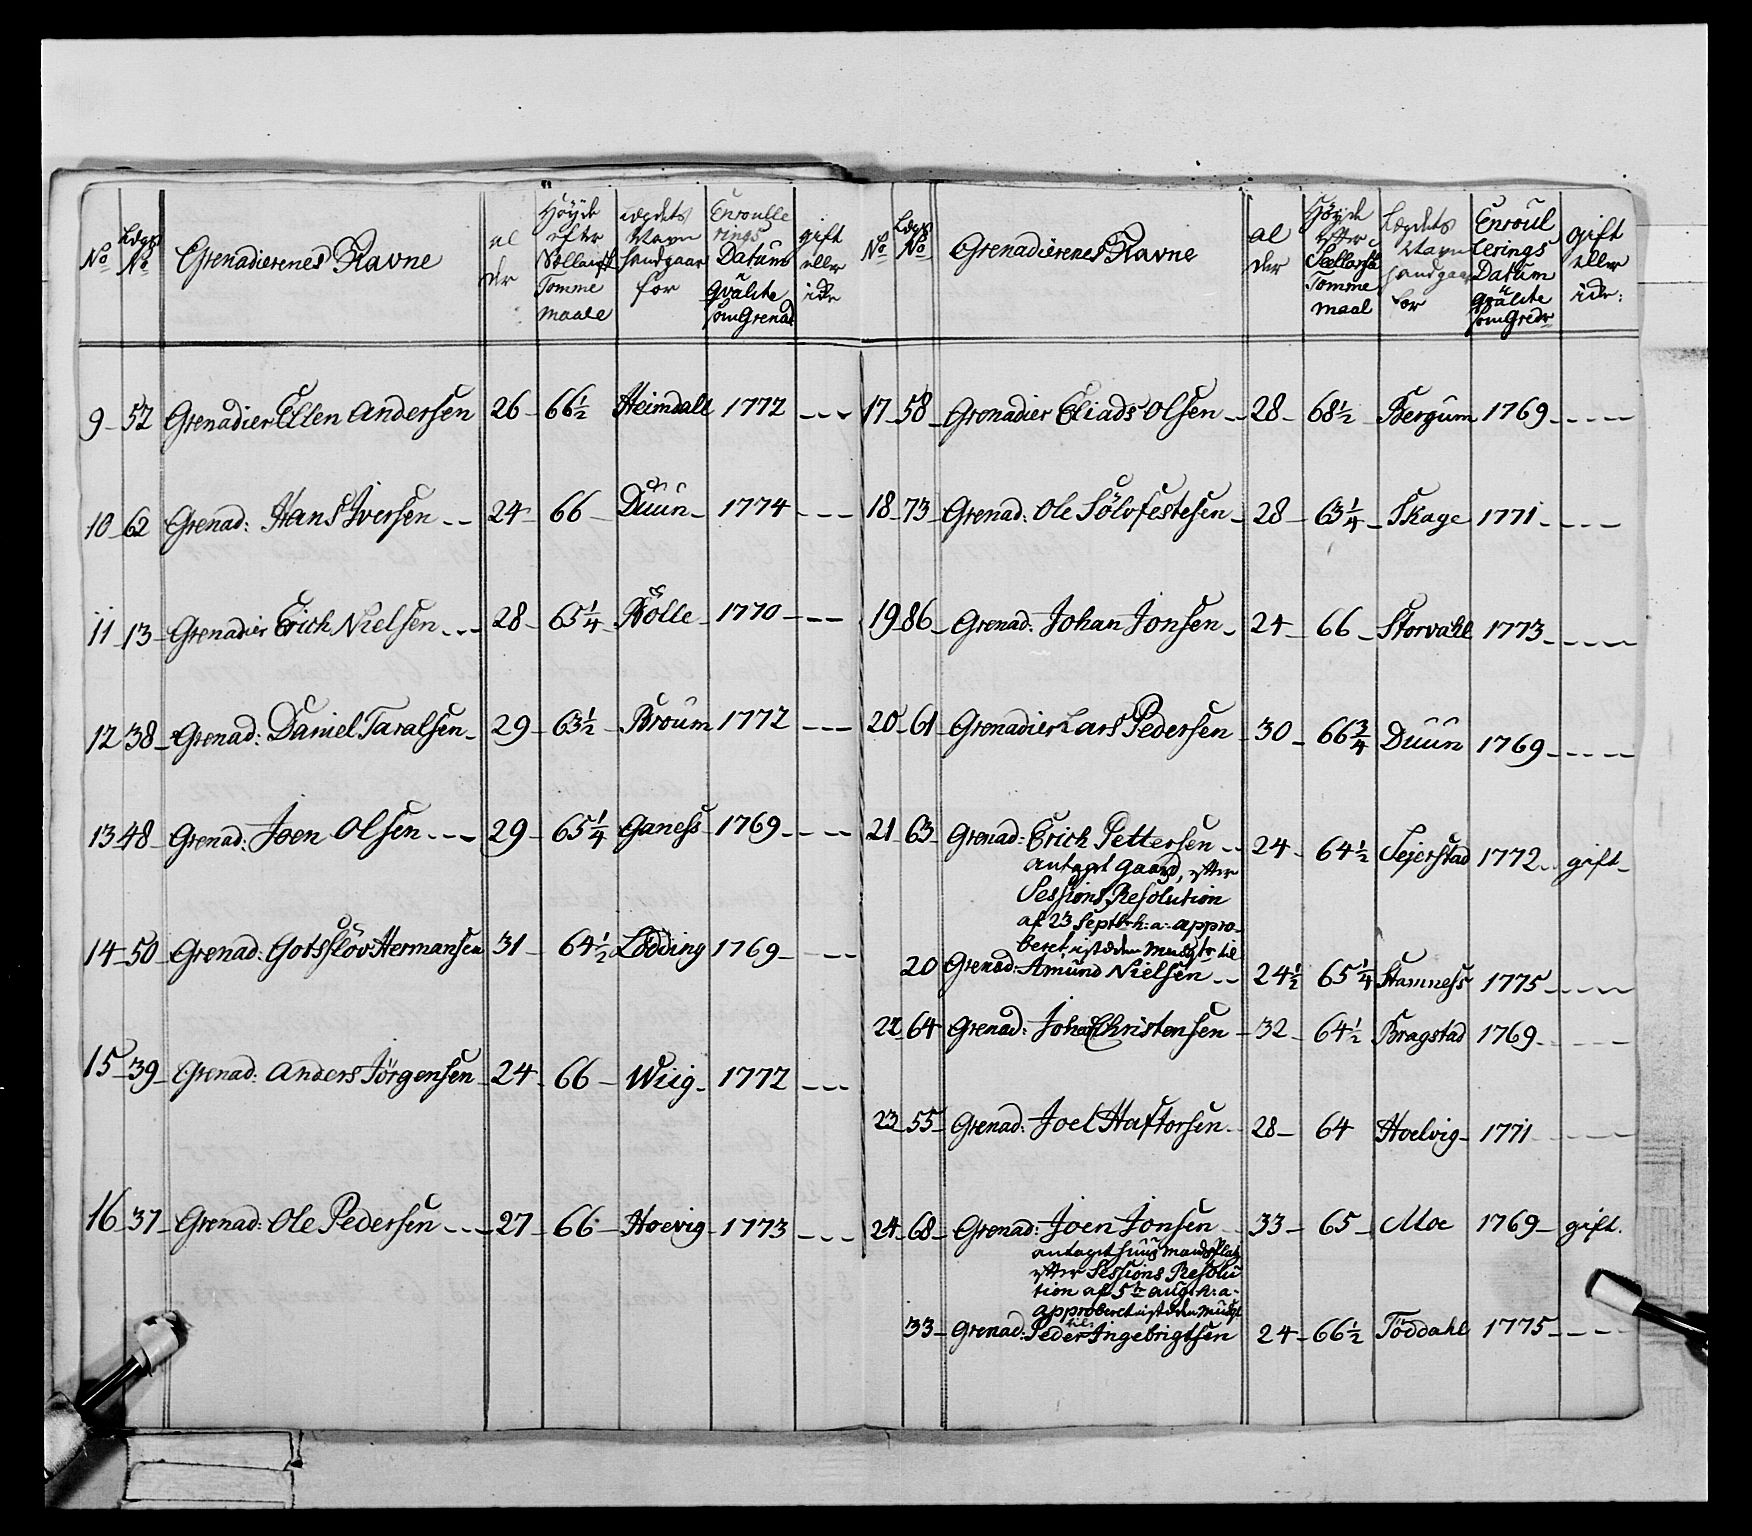 No
Lægs No
Grenadierenes Navne
al
der
Höyde
efter
Tomme
maale
Lægdets
Navn
hand gaar
for
Enroulle
rings
Datum
som Grenad
gift
eller
ikke
9 57 Grenadier Ellen Andersen 26 66½ Heimdall 1772
10 62 Grenad: Hans Iversen 24 66 Duun 1774
11 13 Grenadier Erich Nielsen 28 65¼ Rölle 1770
12 38 Grenad: Daniel Taralsen 29 63½ Broum 1772
13 48 Grenad: Joen Olsen 29 65¼ Ganess 1769
14 50 Grenad: Gotsklov Hermansen 31 64½ Lödding 1769
15 39 Grenad: Anders Jörgensen 24 66 Wiig 1772
16 37 Grenad: Ole Pedersen 27 66 Hoevig 1773
No
Lægs No
Grenadierenes Navne
al
der
Höyde
efter
Tomme
maal
Lægdets
Navn
hand gaar
for
Enroul
lerings
Datum
som Gredr
gift
eller
ikke:
17 58 Grenadier Eliads Olsen 28 68½ Bergum 1769
18 73 Grenad: Ole Sölvfestesen 28 63¼ Skage 1771
19 86 Grenad: Johan Jonsen 24 66 Storvahl 1773
20 61 Grenadier Lars Pedersen 30 66¾ Duun 1769
21 63 Grenad: Erich Pettersen 24 64½ Sejerstad 1772 gift
antaget Gaard, efter
Sessions Resolution
af 23 Septbr h: a: appro-
beret
til
20 Grenad: Amund Nielsen 24½ 65¼ Stamness 1775
22 64 Grenad: Johan Christensen 32 64½ Bragstad 1769
23 55 Grenad: Joel Haftorsen 28 64 Hoelvig 1771
24 68 Grenad: Joen Jonsen 33 65 Moe 1769 gift.
antaget Huusmands Plads
efter Sessions Resolu
tion af 5te Aug: h: a:
approberet
til:
33 Grenad: Peder Ingebrigtsen 24 66½ Töddahl 1775